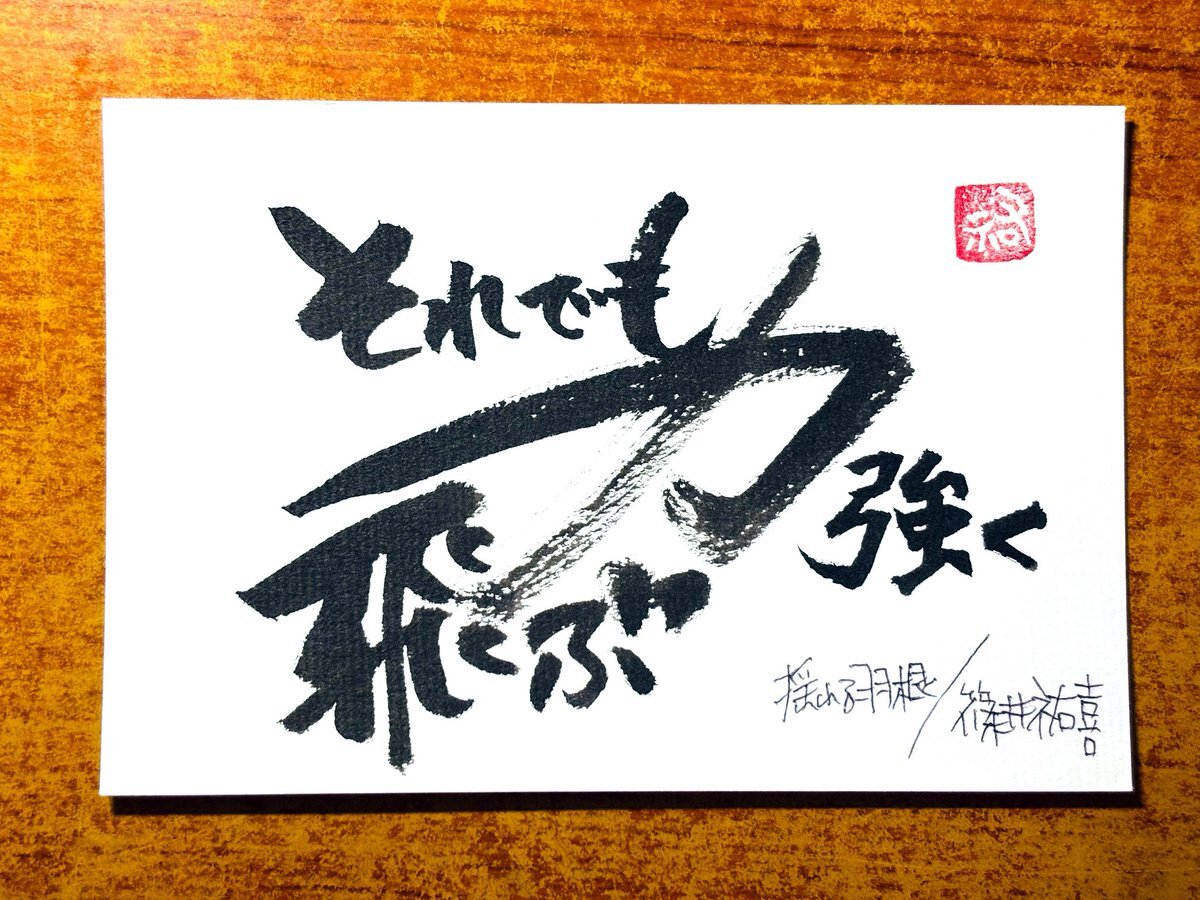 それでも
力強く
飛ぶ
揺れる羽根/篠井祐喜